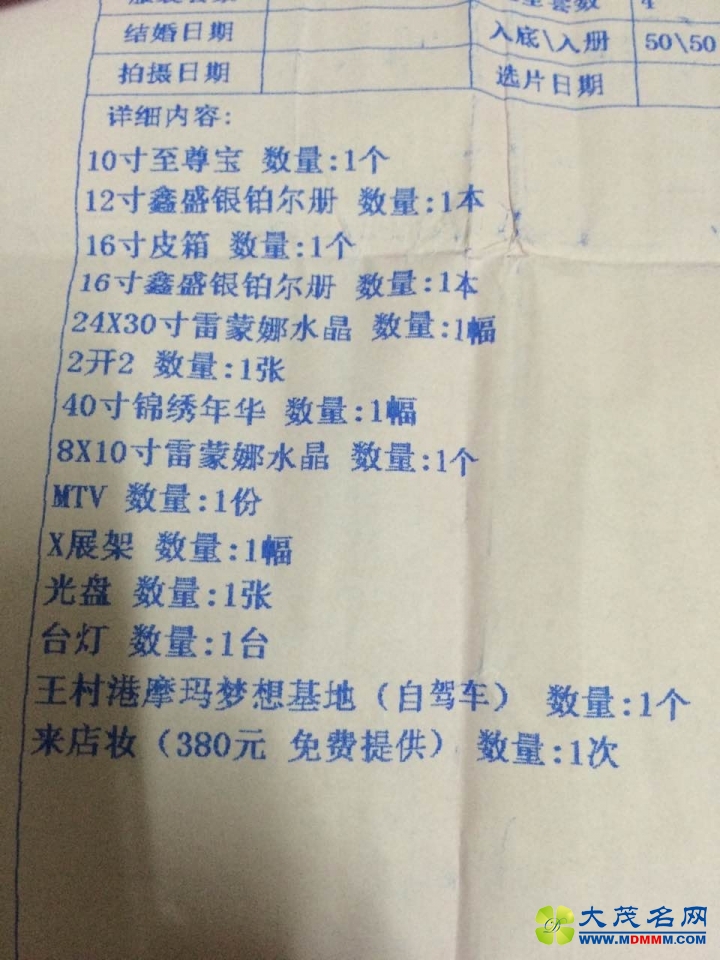 4
结婚日期 入底\入册 50\50
拍摄日期 选片日期
详细内容:
10寸至尊宝 数量:1个
12寸鑫盛银铂尔册 数量:1本
16寸皮箱 数量:1个
16寸鑫盛银铂尔册 数量:1本
24X30寸雷蒙娜水晶 数量:1幅
2开2 数量:1张
40寸锦绣年华 数量:1幅
8X10寸雷蒙娜水晶 数量:1个
MTV 数量:1份
X展架 数量:1幅
光盘 数量:1张
台灯 数量:1台
王村港摩玛梦想基地（自驾车） 数量:1个
来店妆（380元 免费提供） 数量:1次
大茂名网
WWW.MDMMM.COM